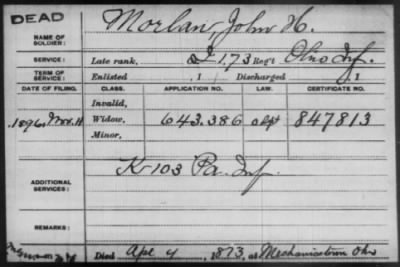 DEAD
NAME OF SOLDIER: Morlan, John H.
SERVICE: Late rank, I 173 Reg't Ohio Inf.
TERM OF SERVICE: Enlisted , 1 Discharged , 1
DATE OF FILING. CLASS. APPLICATION NO. LAW. CERTIFICATE NO.
Invalid,
1896, Nov. 11 Widow, 643.386 847813
Minor,
ADDITIONAL SERVICES: K-103 Pa. Inf.
REMARKS:
Died Apr 4, 1873, at Mechanicstown Ohio